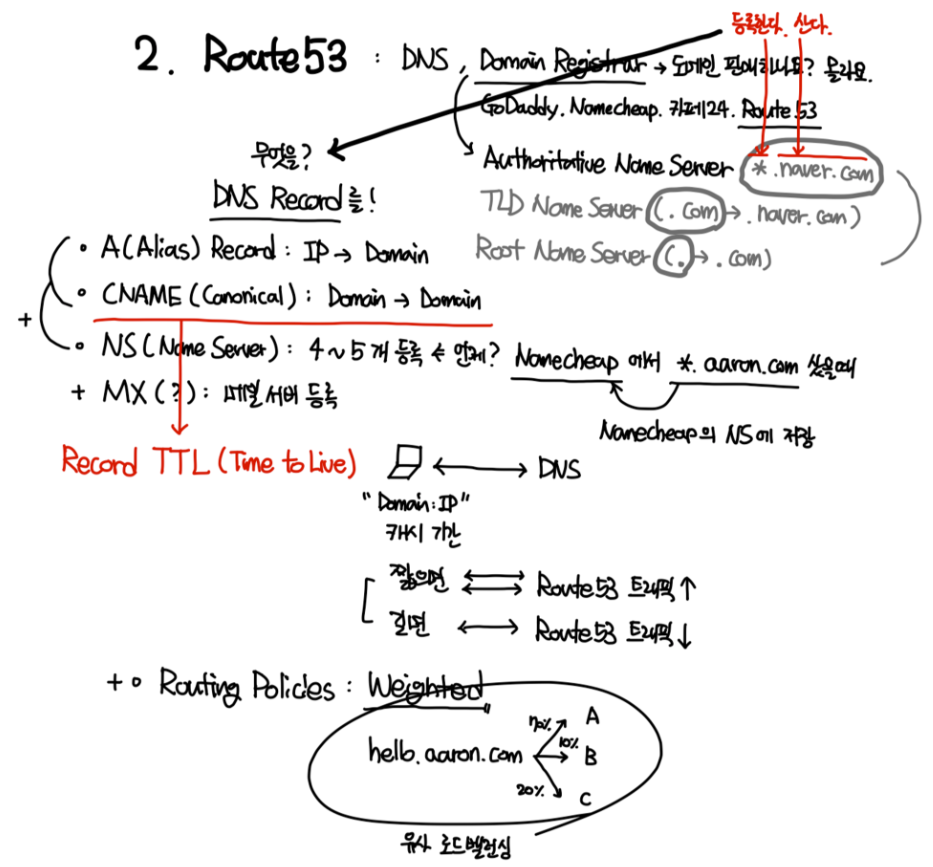 등록한다. 산다.
2. Route53 : DNS, Domain Registrar → 도메인 판매하나요? 몰라요.
GoDaddy. Namecheap. 카페24. Route 53
무엇을?
DNS Record를!
Authoritative Name Server *.naver.com
TLD Name Server (.com → .naver.com)
Root Name Server (. → .com)
• A(Alias) Record : IP → Domain
• CNAME (Canonical) : Domain → Domain
+
• NS (Name Server) : 4~5개 등록 ← 언제? Namecheap 에서 *.aaron.com 샀을때
+ MX (?) : 메일서버 등록
Namecheap의 NS에 저장
Record TTL (Time to Live)
↔ DNS
"Domain:IP"
캐시 기간
짧으면 Route53 트래픽 ↑
길면 ↔ Route53 트래픽 ↓
+ • Routing Policies : Weighted
hello.aaron.com
70% A
10% B
20% C
유사 로드밸런싱